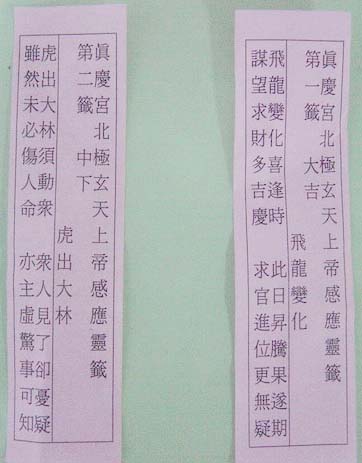 眞慶宮北極玄天上帝感應靈籤
第一籤 大吉 飛龍變化
飛龍變化喜逢時 此日昇騰果遂期
謀望求財多吉慶 求官進位更無疑
眞慶宮北極玄天上帝感應靈籤
第二籤 中下 虎出大林
虎出大林須動衆 衆人見了卻憂疑
雖然未必傷人命 亦主虛驚事可知